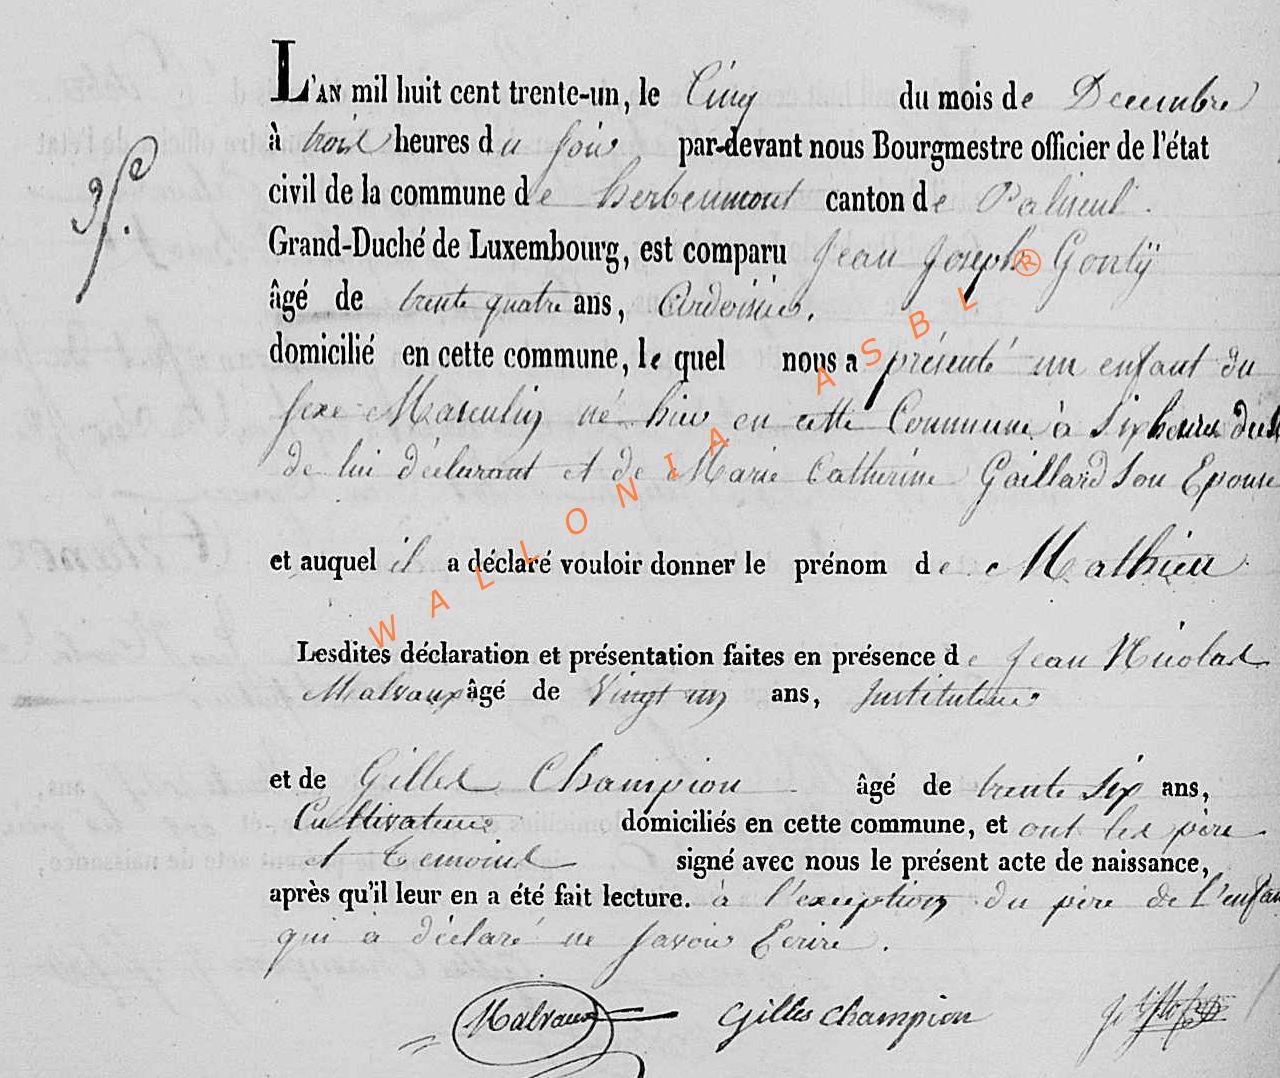 L'AN mil huit cent trente-un, le Cinq du mois de Decembre
à trois heures du soir par-devant nous Bourgmestre officier de l'état
civil de la commune de herbeumont canton de Paliseul.
Grand-Duché de Luxembourg, est comparu Jean Joseph Gontÿ
âgé de trente quatre ans, Ardoisier.
domicilié en cette commune, le quel nous a présenté un enfant du
sexe Masculin né hier en cette Commune à Six heures du
de lui déclarant et de Marie Catherine Gaillard Son Epouse
et auquel il a déclaré vouloir donner le prénom de Mathieu
Lesdites déclaration et présentation faites en présence de Jean Nicolas
Malvaux âgé de Vingt un ans, Instituteur
et de Gilles Champion âgé de trente six ans,
Cultivateur domiciliés en cette commune, et ont les père
et temoins signé avec nous le présent acte de naissance,
après qu'il leur en a été fait lecture. à l'exception du père de l'enfan
qui a déclaré ne savoir Ecrire.
Malvaux Gilles Champion
WALLONIA ASBL ®